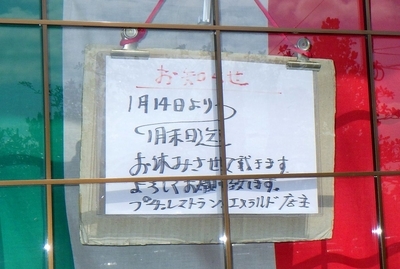 お知らせ
1月14日より
1月末日迄
お休みさせて戴きます
よろしくお願い致します。
ブータンレストラン エメラルド 店主